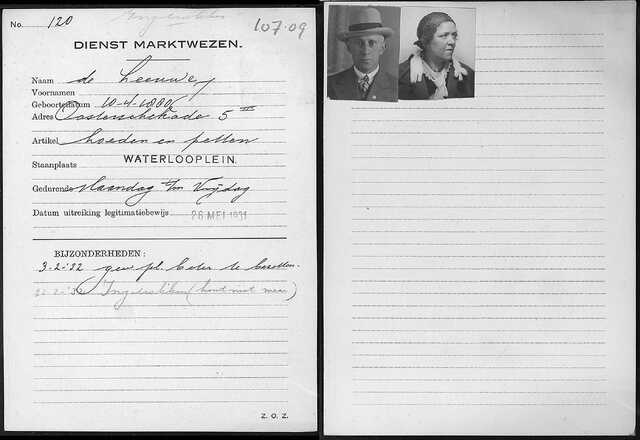 No. 120
107.09
DIENST MARKTWEZEN.
Naam de Leeuw
Voornamen
Geboortedatum 10-4-1880
Adres Oosterschekade 5 II
Artikel hoeden en petten
Staanplaats WATERLOOPLEIN.
Gedurende Maandag t/m Vrijdag
Datum uitreiking legitimatiebewijs 26 MEI 1931
BIJZONDERHEDEN:
3-2-'32 gew. pl. beter te bezetten.
Ingetrokken (komt niet meer)
Z. O. Z.